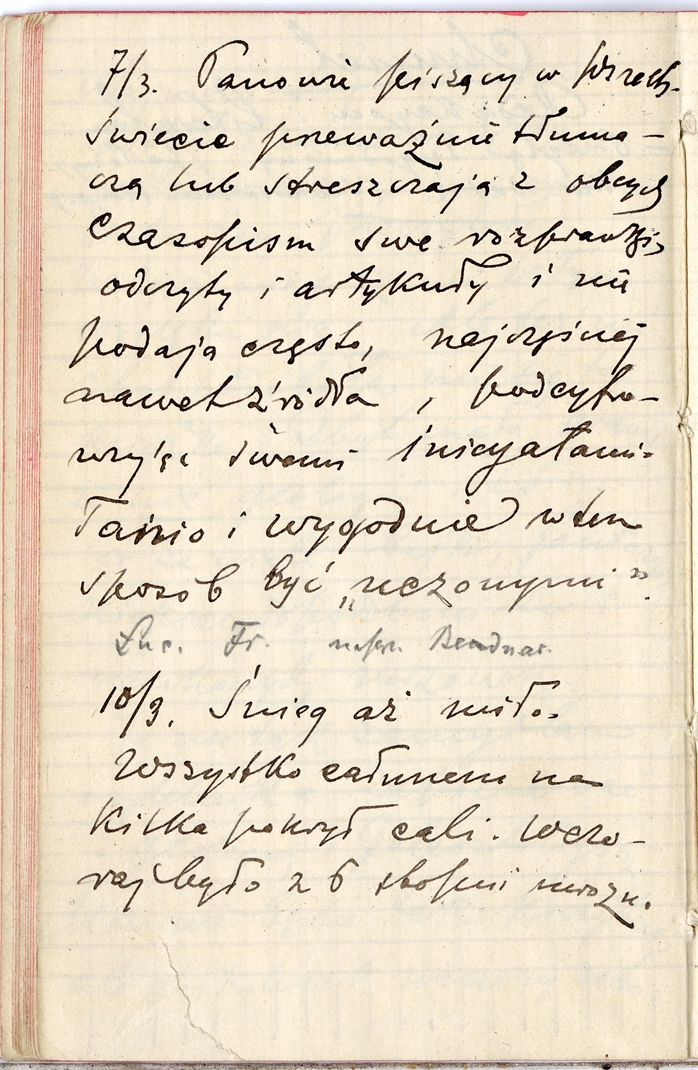 7/3. Panowie piszący w Wszech-
świecie przeważnie tłuma-
czą lub streszczają z obcych
czasopism swe rozprawki,
odczyty i artykuły i nie
podają często, najczęściej
nawet źródła, podcyfro-
wując swemi inicyałami.
Tanio i wygodnie w ten
sposób być „uczonymi".
Luc. Fr.
10/3. Śnieg aż miło.
Wszystko całunem na
kilka pokrył cali. Wczo-
raj było z 6 stopni mrozu.